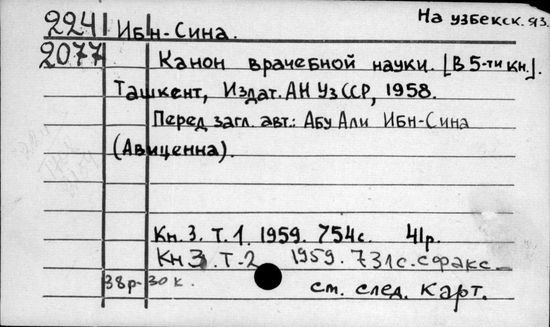 На узбекск. яз.
2241 Ибн-Сина.
2077 Канон врачебной науки. [В 5-ти кн.].
Ташкент, Издат. АН УзССР, 1958.
Перед загл. авт.: Абу Али Ибн-Сина
(Авиценна).
Кн. 3. Т. 1. 1959. 754с. 41р.
Кн 3. Т-2 1959. 731с. с факс
38р-30к. см. след. карт.